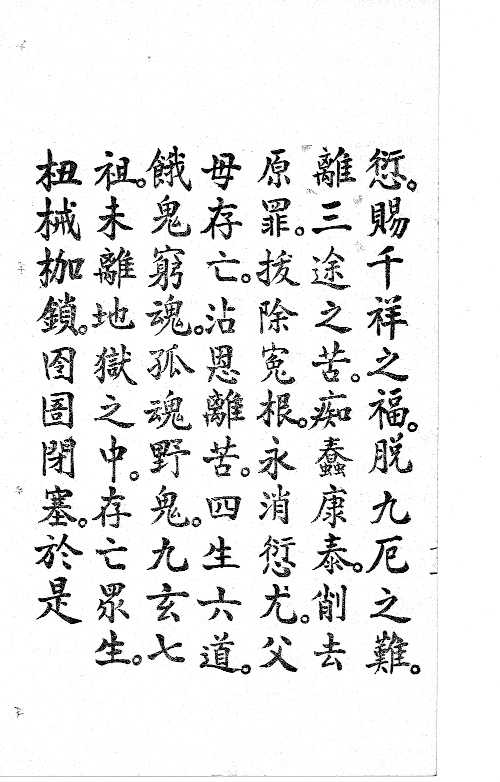 愆。賜千祥之福。脫九厄之難。
離三途之苦。痴蠢康泰。削去
原罪。拔除冤根。永消愆尤。父
母存亡。沾恩離苦。四生六道。
餓鬼窮魂。孤魂野鬼。九玄七
祖。未離地獄之中。存亡眾生。
杻械枷鎖。囹圄閉塞。於是